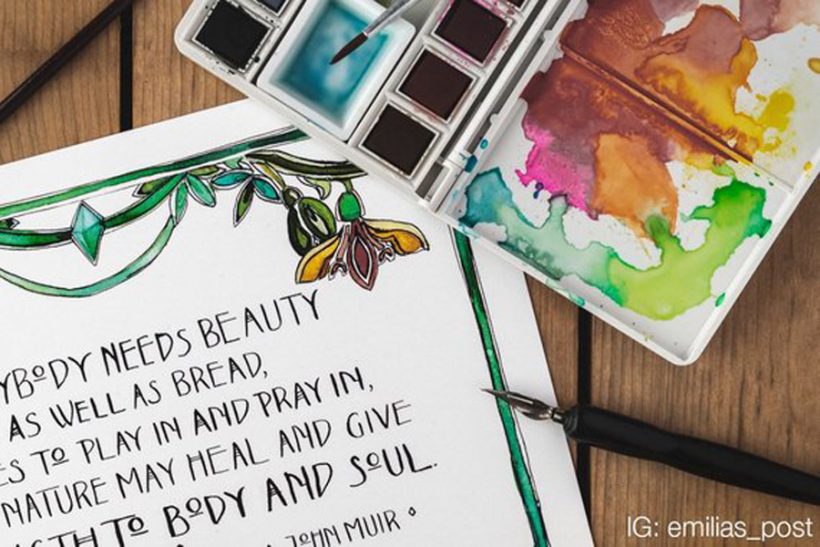 YBODY NEEDS BEAUTY
AS WELL AS BREAD,
ES TO PLAY IN AND PRAY IN,
NATURE MAY HEAL AND GIVE
GTH TO BODY AND SOUL.
JOHN MUIR
IG: emilias_post